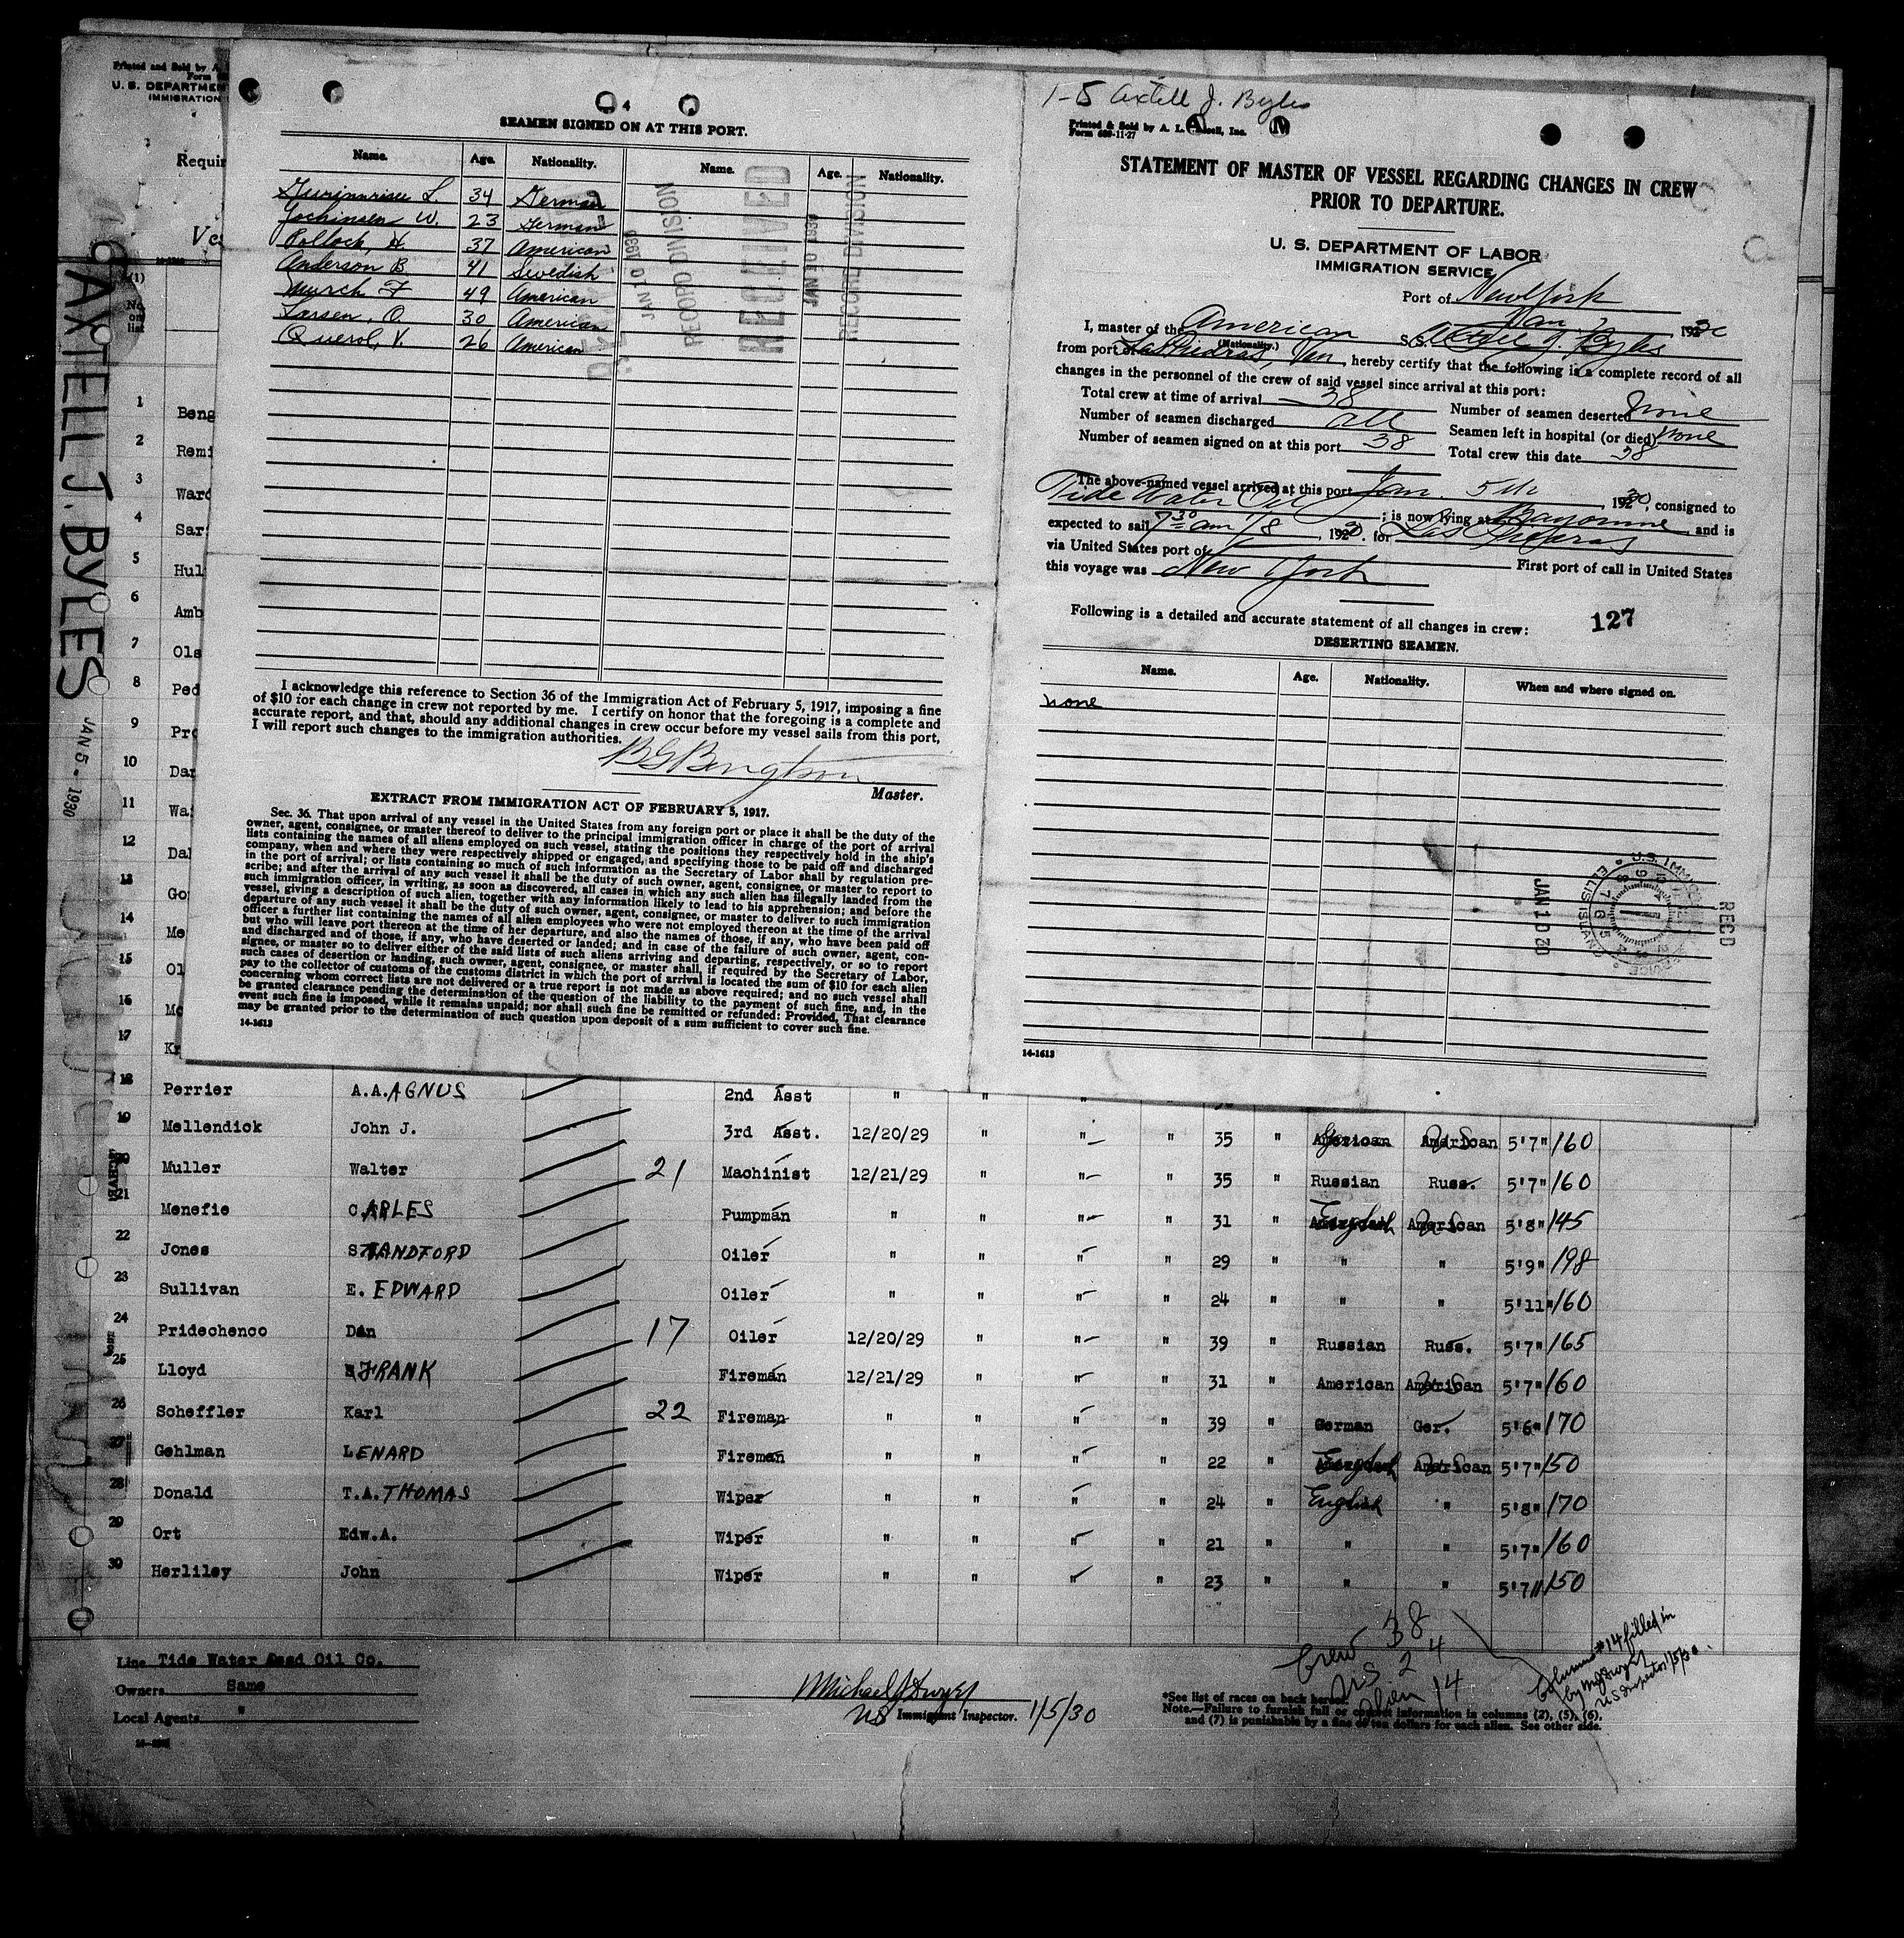 Printed and Sold by A
Form
U. S. DEPARTMEN
IMMIGRATION
Requir
Ves
(1)
No. on list
AXTELL J. BYLES
JAN 5 - 1930
1 Beng
2 Remi
3 Ward
4 Sar
5 Hul
6 Amb
7 Ols
8 Ped
9 Pro
10 Dar
11 Wa
12 Dal
13 Go
14 Me
15 Ol
16 Mo
17 Kr
4
SEAMEN SIGNED ON AT THIS PORT.
Name. Age. Nationality. Name. Age. Nationality.
L. 34 German
Jochimsen W. 23 German
Pollock, H. 37 American
Anderson B. 41 Swedish
Murch F 49 American
Larsen, O. 30 American
Querol, V. 26 American
RECEIVED
JAN 10 1930
RECORD DIVISION
I acknowledge this reference to Section 36 of the Immigration Act of February 5, 1917, imposing a fine
of $10 for each change in crew not reported by me. I certify on honor that the foregoing is a complete and
accurate report, and that, should any additional changes in crew occur before my vessel sails from this port,
I will report such changes to the immigration authorities.
B G Bengtson
Master.
EXTRACT FROM IMMIGRATION ACT OF FEBRUARY 5, 1917.
Sec. 36. That upon arrival of any vessel in the United States from any foreign port or place it shall be the duty of the
owner, agent, consignee, or master thereof to deliver to the principal immigration officer in charge of the port of arrival
lists containing the names of all aliens employed on such vessel, stating the positions they respectively hold in the ship's
company, when and where they were respectively shipped or engaged, and specifying those to be paid off and discharged
in the port of arrival; or lists containing so much of such information as the Secretary of Labor shall by regulation pre-
scribe; and after the arrival of any such vessel it shall be the duty of such owner, agent, consignee, or master to report to
such immigration officer, in writing, as soon as discovered, all cases in which any such alien has illegally landed from the
vessel, giving a description of such alien, together with any information likely to lead to his apprehension; and before the
departure of any such vessel it shall be the duty of such owner, agent, consignee, or master to deliver to such immigration
officer a further list containing the names of all alien employees who were not employed thereon at the time of the arrival
but who will leave port thereon at the time of her departure, and also the names of those, if any, who have been paid off
and discharged and of those, if any, who have deserted or landed; and in case of the failure of such owner, agent, con-
signee, or master so to deliver either of the said lists of such aliens arriving and departing, respectively, or so to report
such cases of desertion or landing, such owner, agent, consignee, or master shall, if required by the Secretary of Labor,
pay to the collector of customs of the customs district in which the port of arrival is located the sum of $10 for each alien
concerning whom correct lists are not delivered or a true report is not made as above required; and no such vessel shall
be granted clearance pending the determination of the question of the liability to the payment of such fine, and, in the
event such fine is imposed, while it remains unpaid; nor shall such fine be remitted or refunded: Provided, That clearance
may be granted prior to the determination of such question upon deposit of a sum sufficient to cover such fine.
14-1613
1-5 Axtell J. Byles
Printed & Sold by A. L. Russell, Inc.
Form 689-11-27
STATEMENT OF MASTER OF VESSEL REGARDING CHANGES IN CREW
PRIOR TO DEPARTURE.
U. S. DEPARTMENT OF LABOR
IMMIGRATION SERVICE
Port of New York
Jan. 7, 1930
I, master of the American S.S. Axtell J. Byles
(Nationality.)
from port of Las Piedras, Ven, hereby certify that the following is a complete record of all
changes in the personnel of the crew of said vessel since arrival at this port:
Total crew at time of arrival 38 Number of seamen deserted None
Number of seamen discharged all Seamen left in hospital (or died) None
Number of seamen signed on at this port 38 Total crew this date 38
The above-named vessel arrived at this port Jan. 5th, 1930, consigned to
Tide Water Oil; is now lying at Bayonne and is
expected to sail 7 30 am 1/8, 1930. for Las Piedras
via United States port of First port of call in United States
this voyage was New York
Following is a detailed and accurate statement of all changes in crew: 127
DESERTING SEAMEN.
Name. Age. Nationality. When and where signed on.
None
REC'D
U.S. IMMIGRATION SERVICE ELLIS ISLAND
JAN 10 30
14-1613
18 Perrier A.A.AGNUS 2nd Asst " "
19 Mellendick John J. 3rd Asst. 12/20/29 " " " 35 " American 5'7" 160
20 Muller Walter 21 Machinist 12/21/29 " " " 35 " Russian Russ. 5'7" 160
21 Menefie CARLES Pumpman " " " " 31 " English American 5'8" 145
22 Jones STANDFORD Oiler " " " " 29 " " " 5'9" 198
23 Sullivan E. EDWARD Oiler " " " " 24 " " " 5'11" 160
24 Pridechenco Dan 17 Oiler 12/20/29 " " " 39 " Russian Russ. 5'7" 165
25 Lloyd FRANK Fireman 12/21/29 " " " 31 " American American 5'7" 160
26 Scheffler Karl 22 Fireman " " " " 39 " German Ger. 5'6" 170
27 Gehlman LENARD Fireman " " " " 22 " English American 5'7" 150
28 Donald T.A. THOMAS Wiper " " " " 24 " English " 5'8" 170
29 Ort Edw.A. Wiper " " " " 21 " " " 5'7" 160
30 Herliley John Wiper " " " " 23 " " " 5'7" 150
Line Tide Water Assd Oil Co.
Owners Same
Local Agents "
Michael J Dwyer
US Immigrant Inspector. 1/5/30
Crew 38
US 24
Alien 14
Column #14 filled in
by MJ Dwyer
US Inspector 1/5/30.
*See list of races on back hereof.
Note.—Failure to furnish full or correct information in columns (2), (5), (6),
and (7) is punishable by a fine of ten dollars for each alien. See other side.